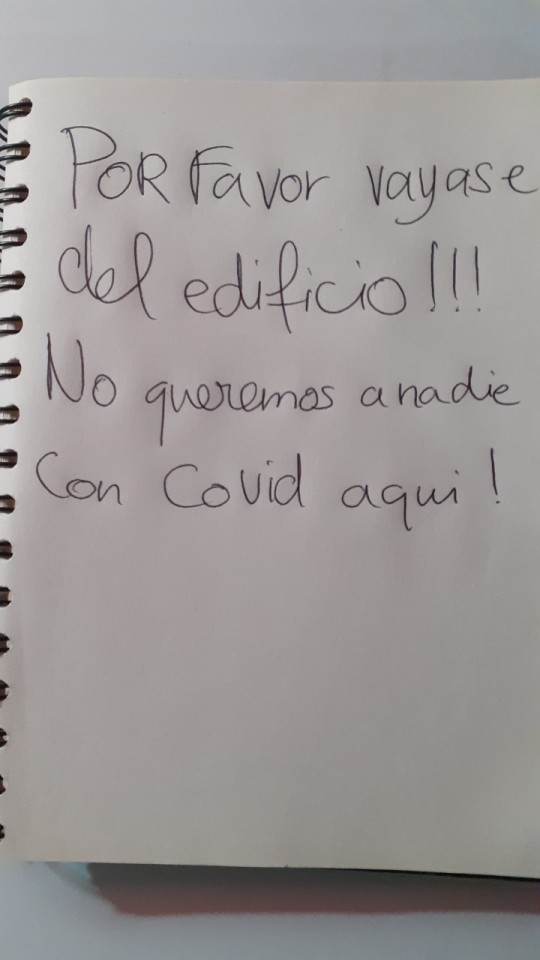 POR Favor vayase
del edificio!!!
No queremos a nadie
con Covid aqui!